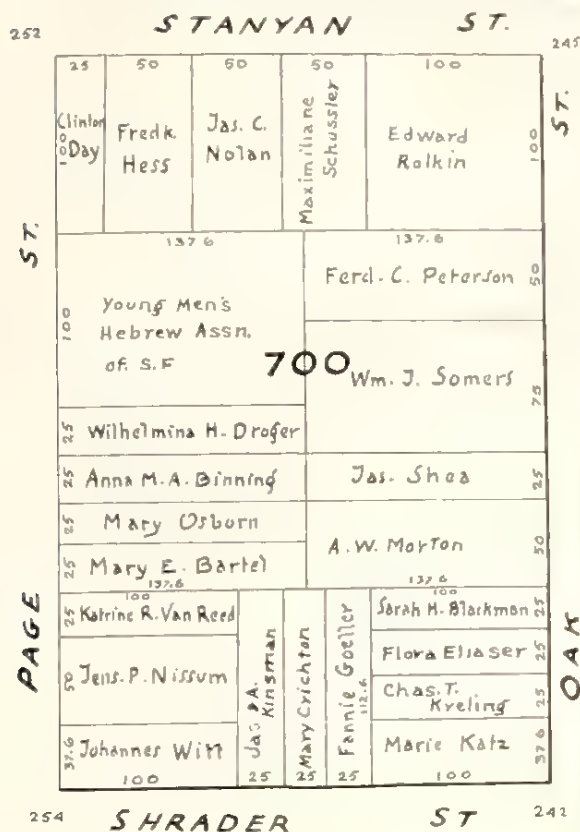 252 STANYAN ST. 245
25 50 50 50 100
Clinton
Day
100
Fredk.
Hess
Jas. C.
Nolan
Maximiliane
Schussler
Edward
Rolkin
100
ST.
ST.
137.6 137.6
Ferd. C. Peterson 50
100
Young Men's
Hebrew Assn.
of S.F
700
Wm. J. Somers
75
25 Wilhelmina H. Droger
25 Anna M. A. Binning
Jas. Shea 25
25 Mary Osburn
A. W. Morton 50
25 Mary E. Bartel
137.6 137.6
PAGE
OAK
100
25 Katrine R. Van Reed
50 Jens. P. Nissum
37.6 Johannes Witt
100
Kinsman
25
Mary Crichton
25
Fannie Goeller
112.6
25
100
Sarah H. Blackman 25
Flora Eliaser 25
Chas. T.
Kreling 25
Marie Katz 37.6
100
254 SHRADER ST 242